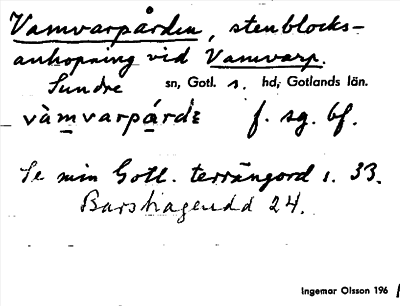 Vamvarpården, stenblocks-
anhopning vid Vamvarp.
Sundre sn, Gotl. s. hd, Gotlands län.
f. sg. bf.
Se min Gotl. terrängord s. 33.
Barshageudd 24.
Ingemar Olsson 196